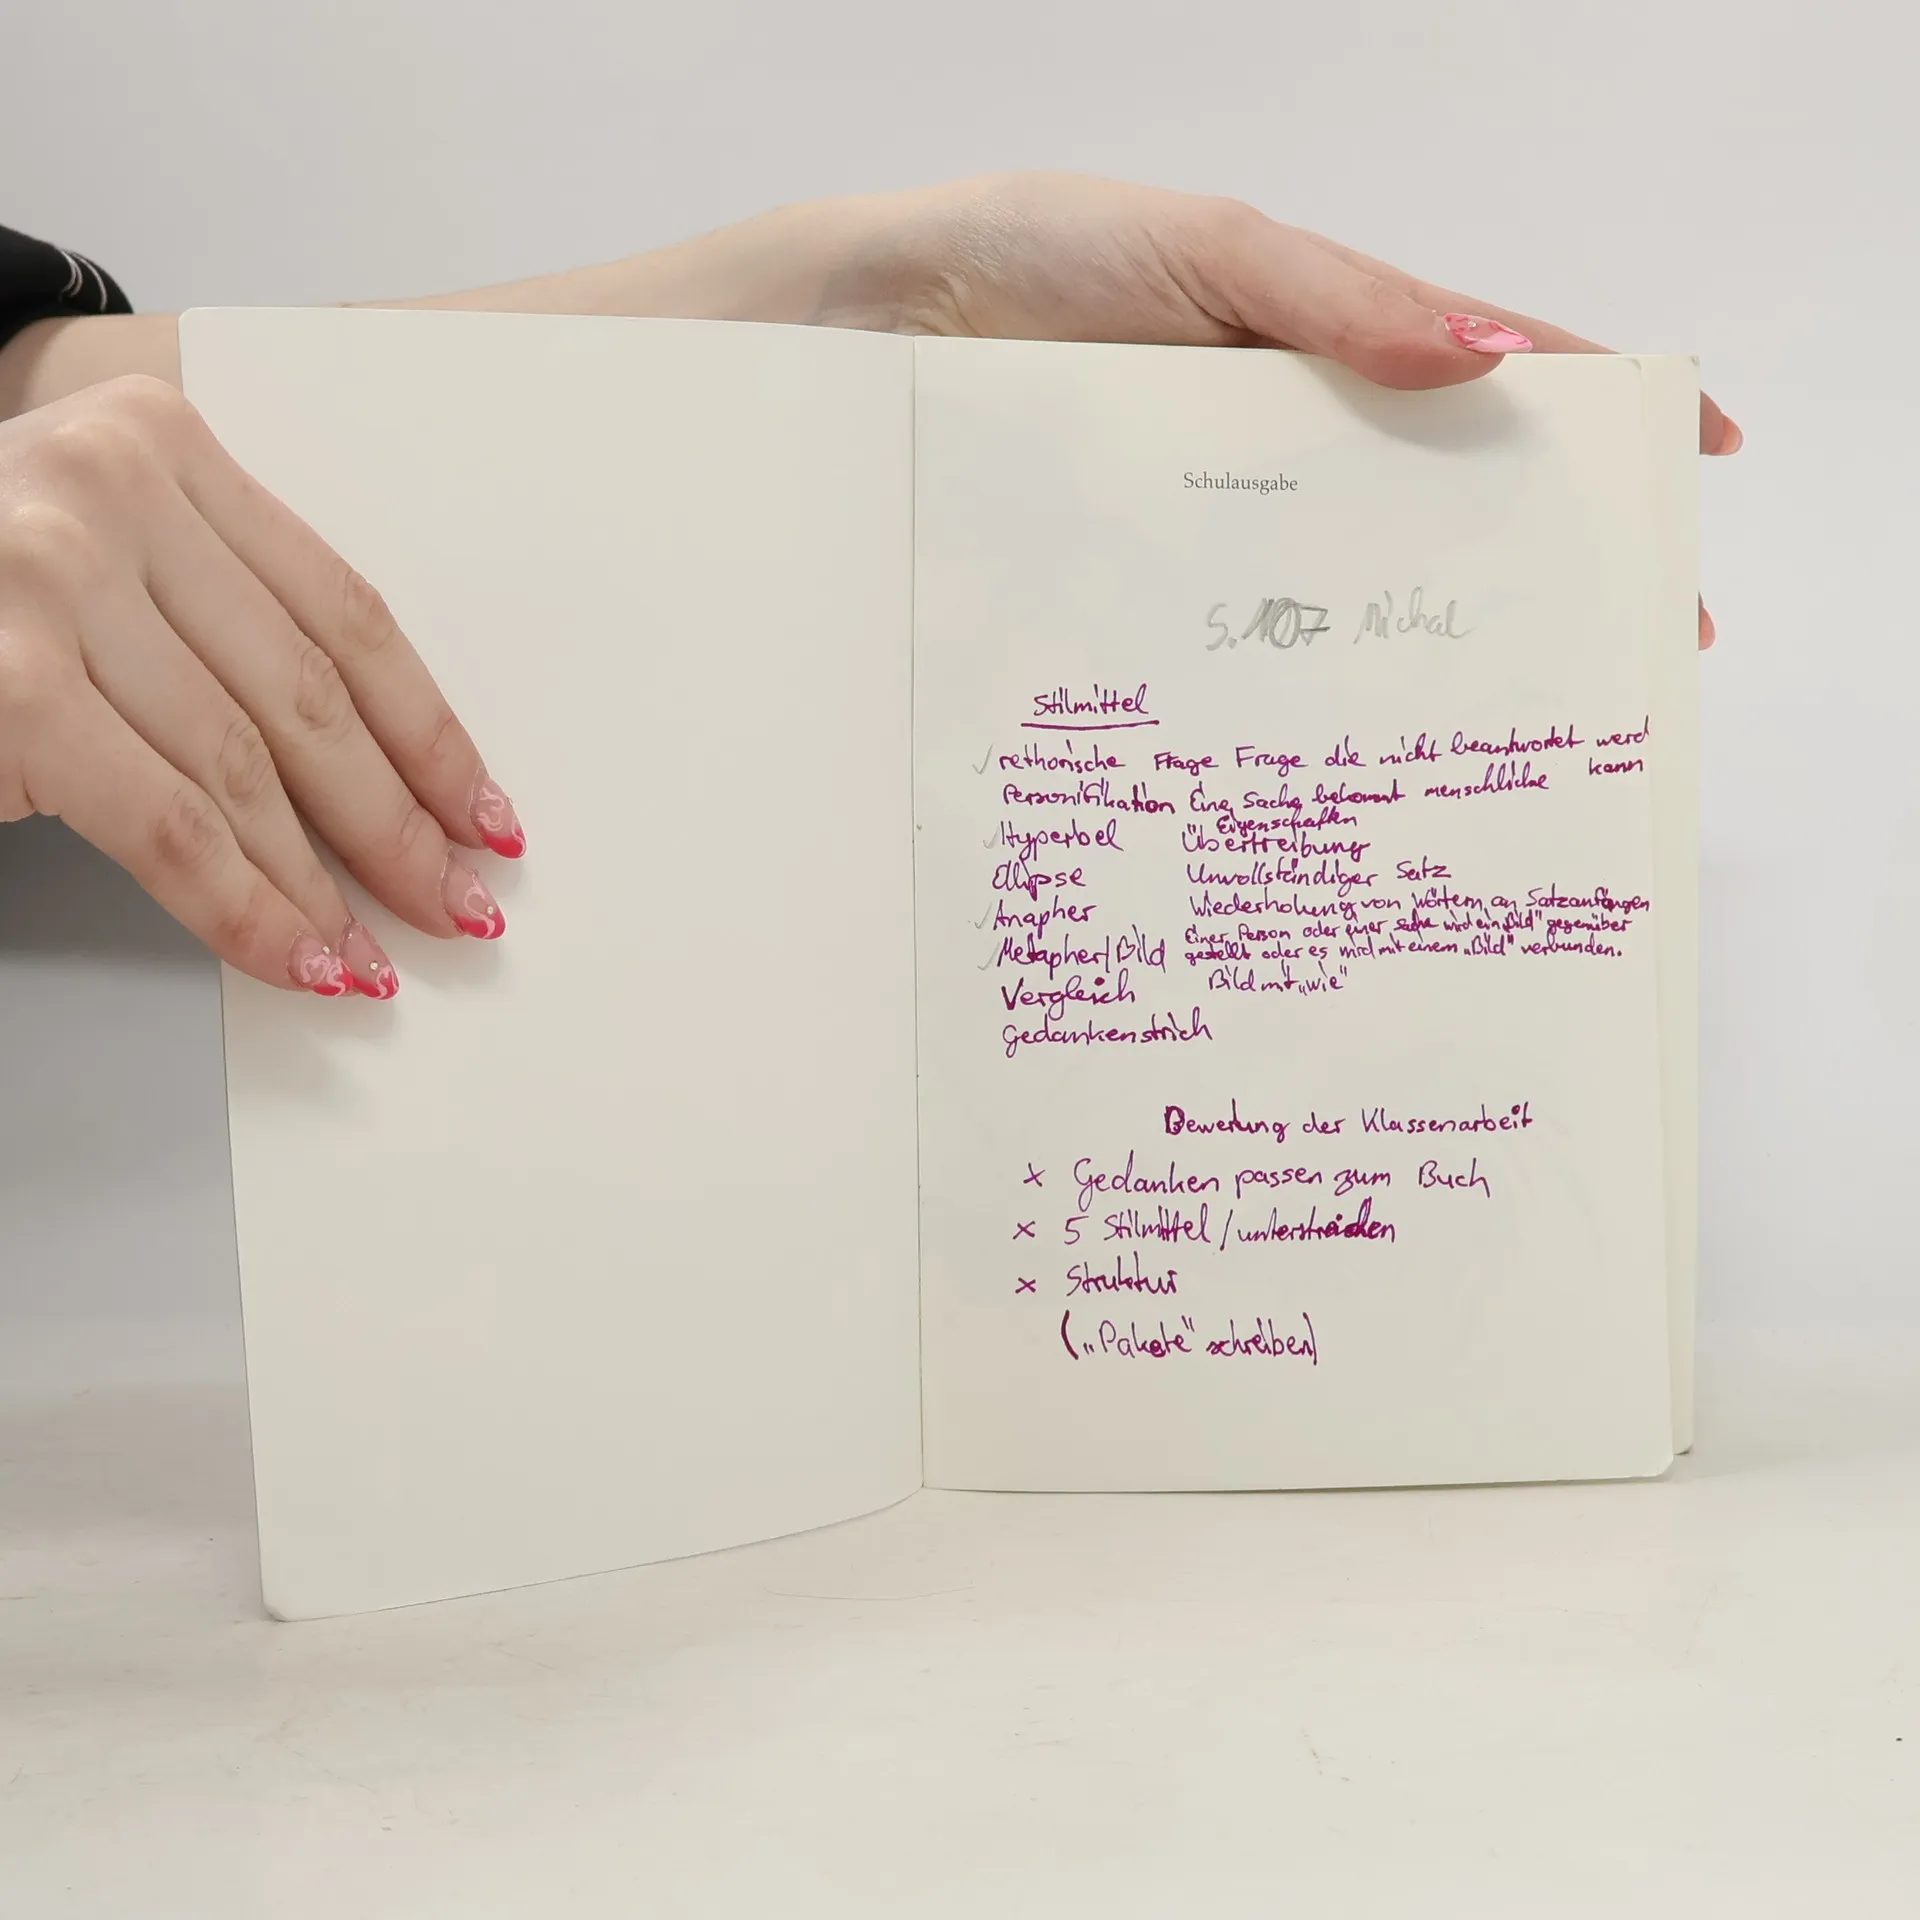 Schulausgabe
S. 107 Michal
Stilmittel
rethorische Frage Frage die nicht beantwortet werd
kann
Personifikation Eine Sache bekommt menschliche
Eigenschaften
Hyperbel Übertreibung
Ellipse Unvollständiger Satz
Anapher Wiederhohlung von Wörtern an Satzanfängen
Metapher/Bild Einer Person oder einer sache wird ein „Bild" gegenüber
gestellt oder es wird mit einem „Bild" verbunden.
Vergleich Bild mit „wie"
Gedankenstrich
Bewertung der Klassenarbeit
x Gedanken passen zum Buch
x 5 Stilmittel / unterstreichen
x Struktur
(„Pakete" schreiben)